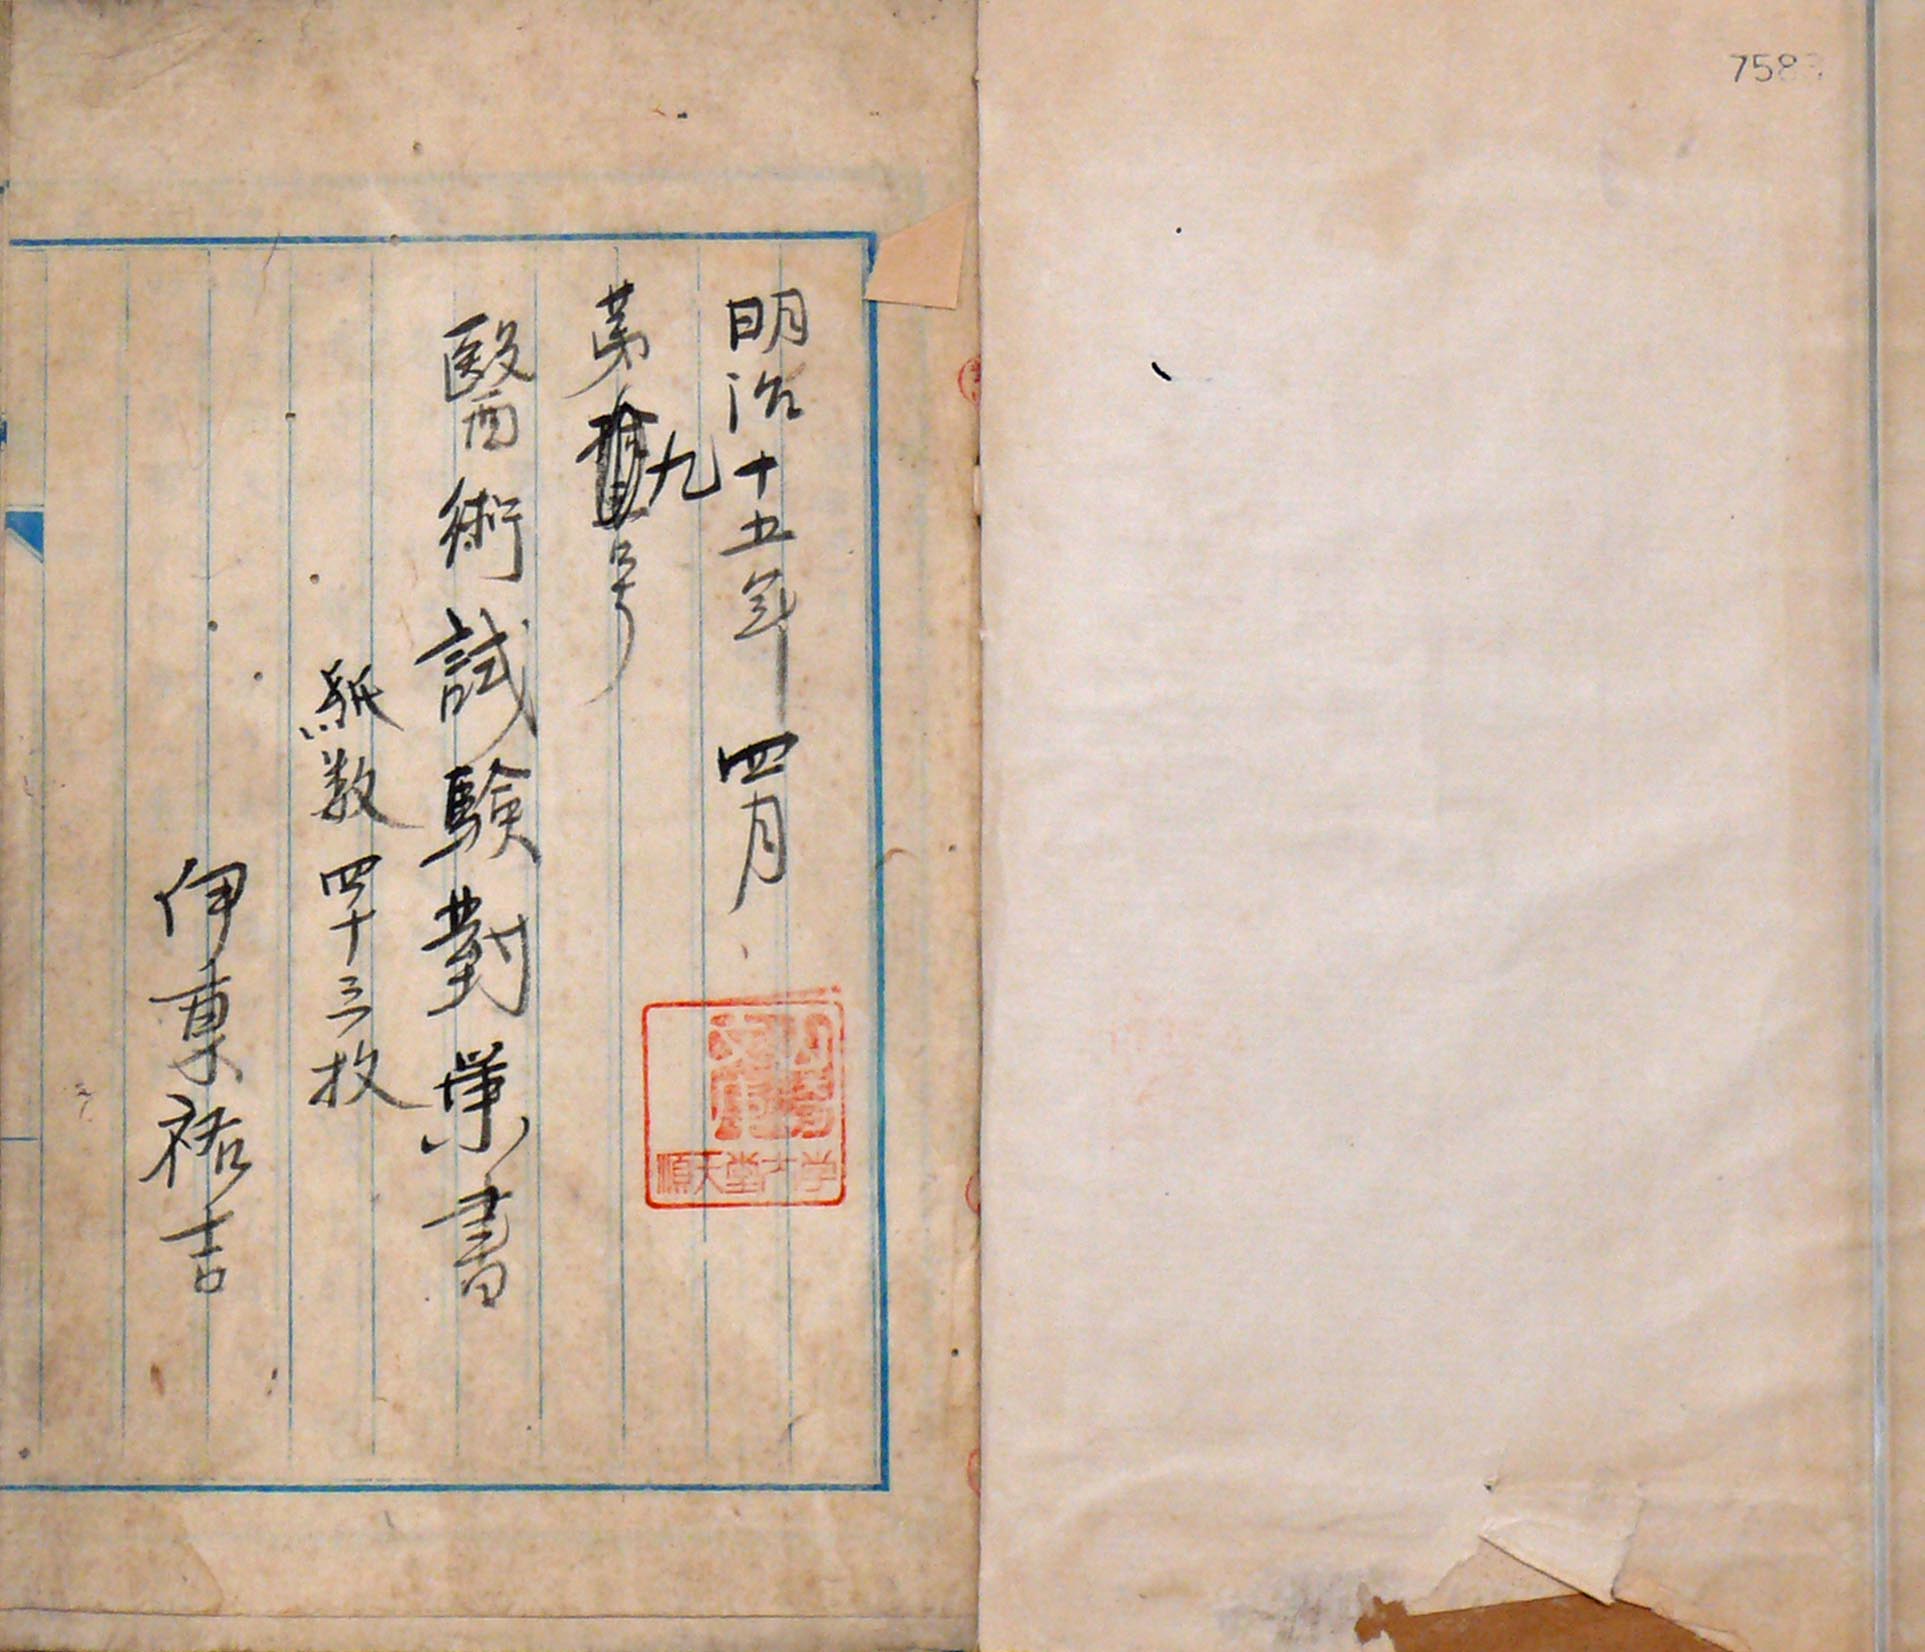 758
明治十五年四月
第九号
醫術試驗對策書
紙数四十三枚
伊東祐吉
山崎
文庫
順天堂大学